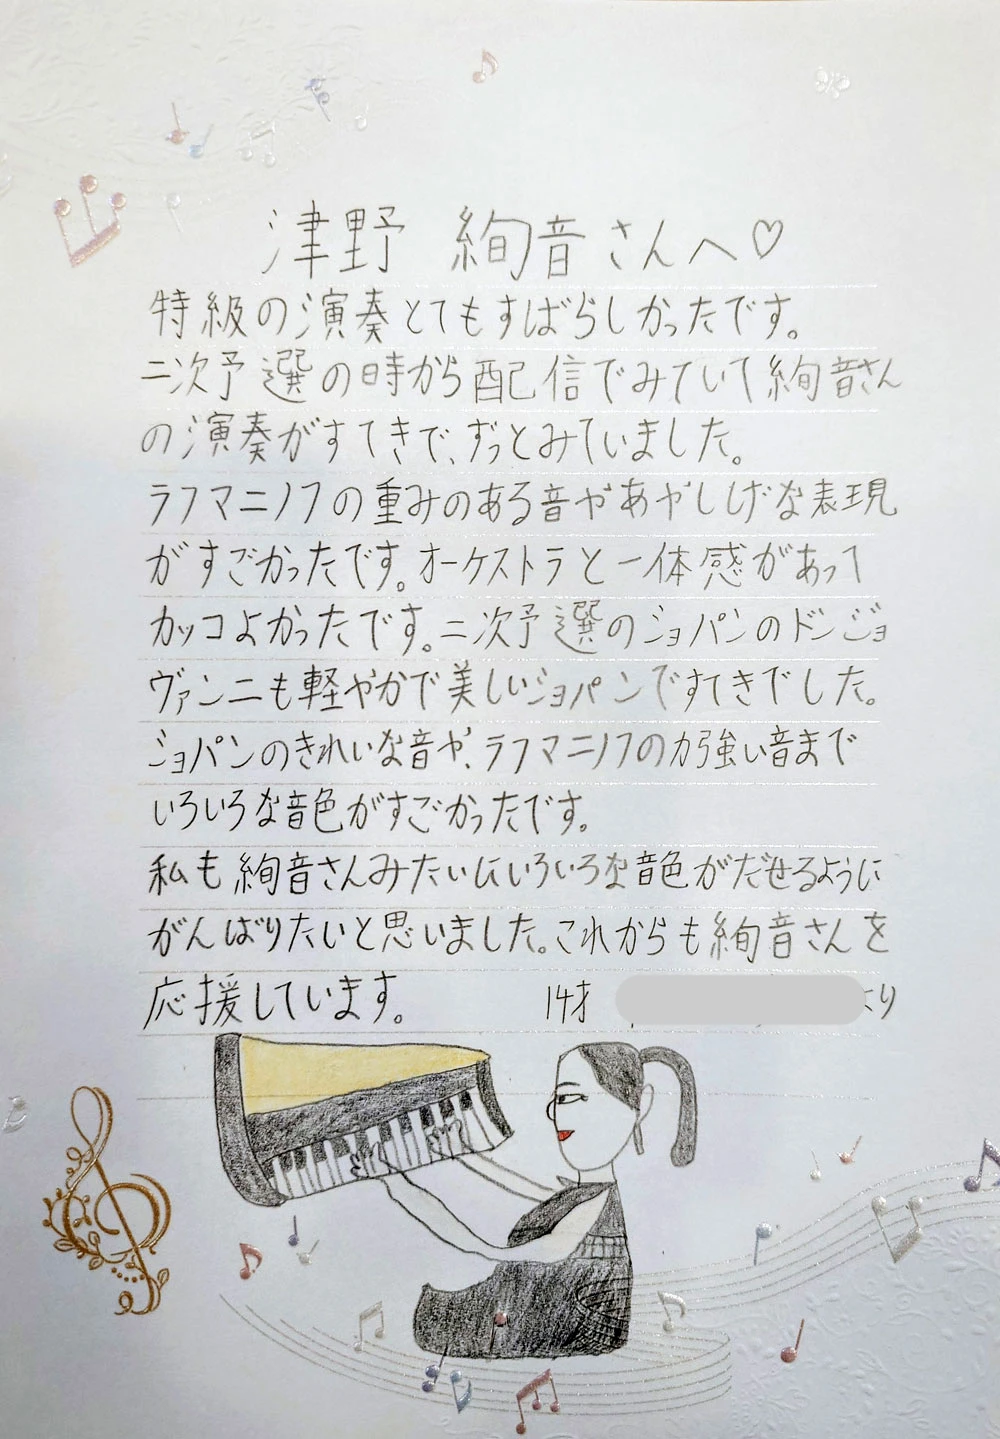 津野 絢音さんへ♡
特級の演奏とてもすばらしかったです。
二次予選の時から配信でみていて絢音さん
の演奏がすてきで、ずっとみていました。
ラフマニノフの重みのある音やあやしげな表現
がすごかったです。オーケストラと一体感があって
カッコよかったです。二次予選のショパンのドンジョ
ヴァンニも軽やかで美しいショパンですてきでした。
ショパンのきれいな音や、ラフマニノフの力強い音まで
いろいろな音色がすごかったです。
私も絢音さんみたいにいろいろな音色がだせるように
がんばりたいと思いました。これからも絢音さんを
応援しています。 14才 より